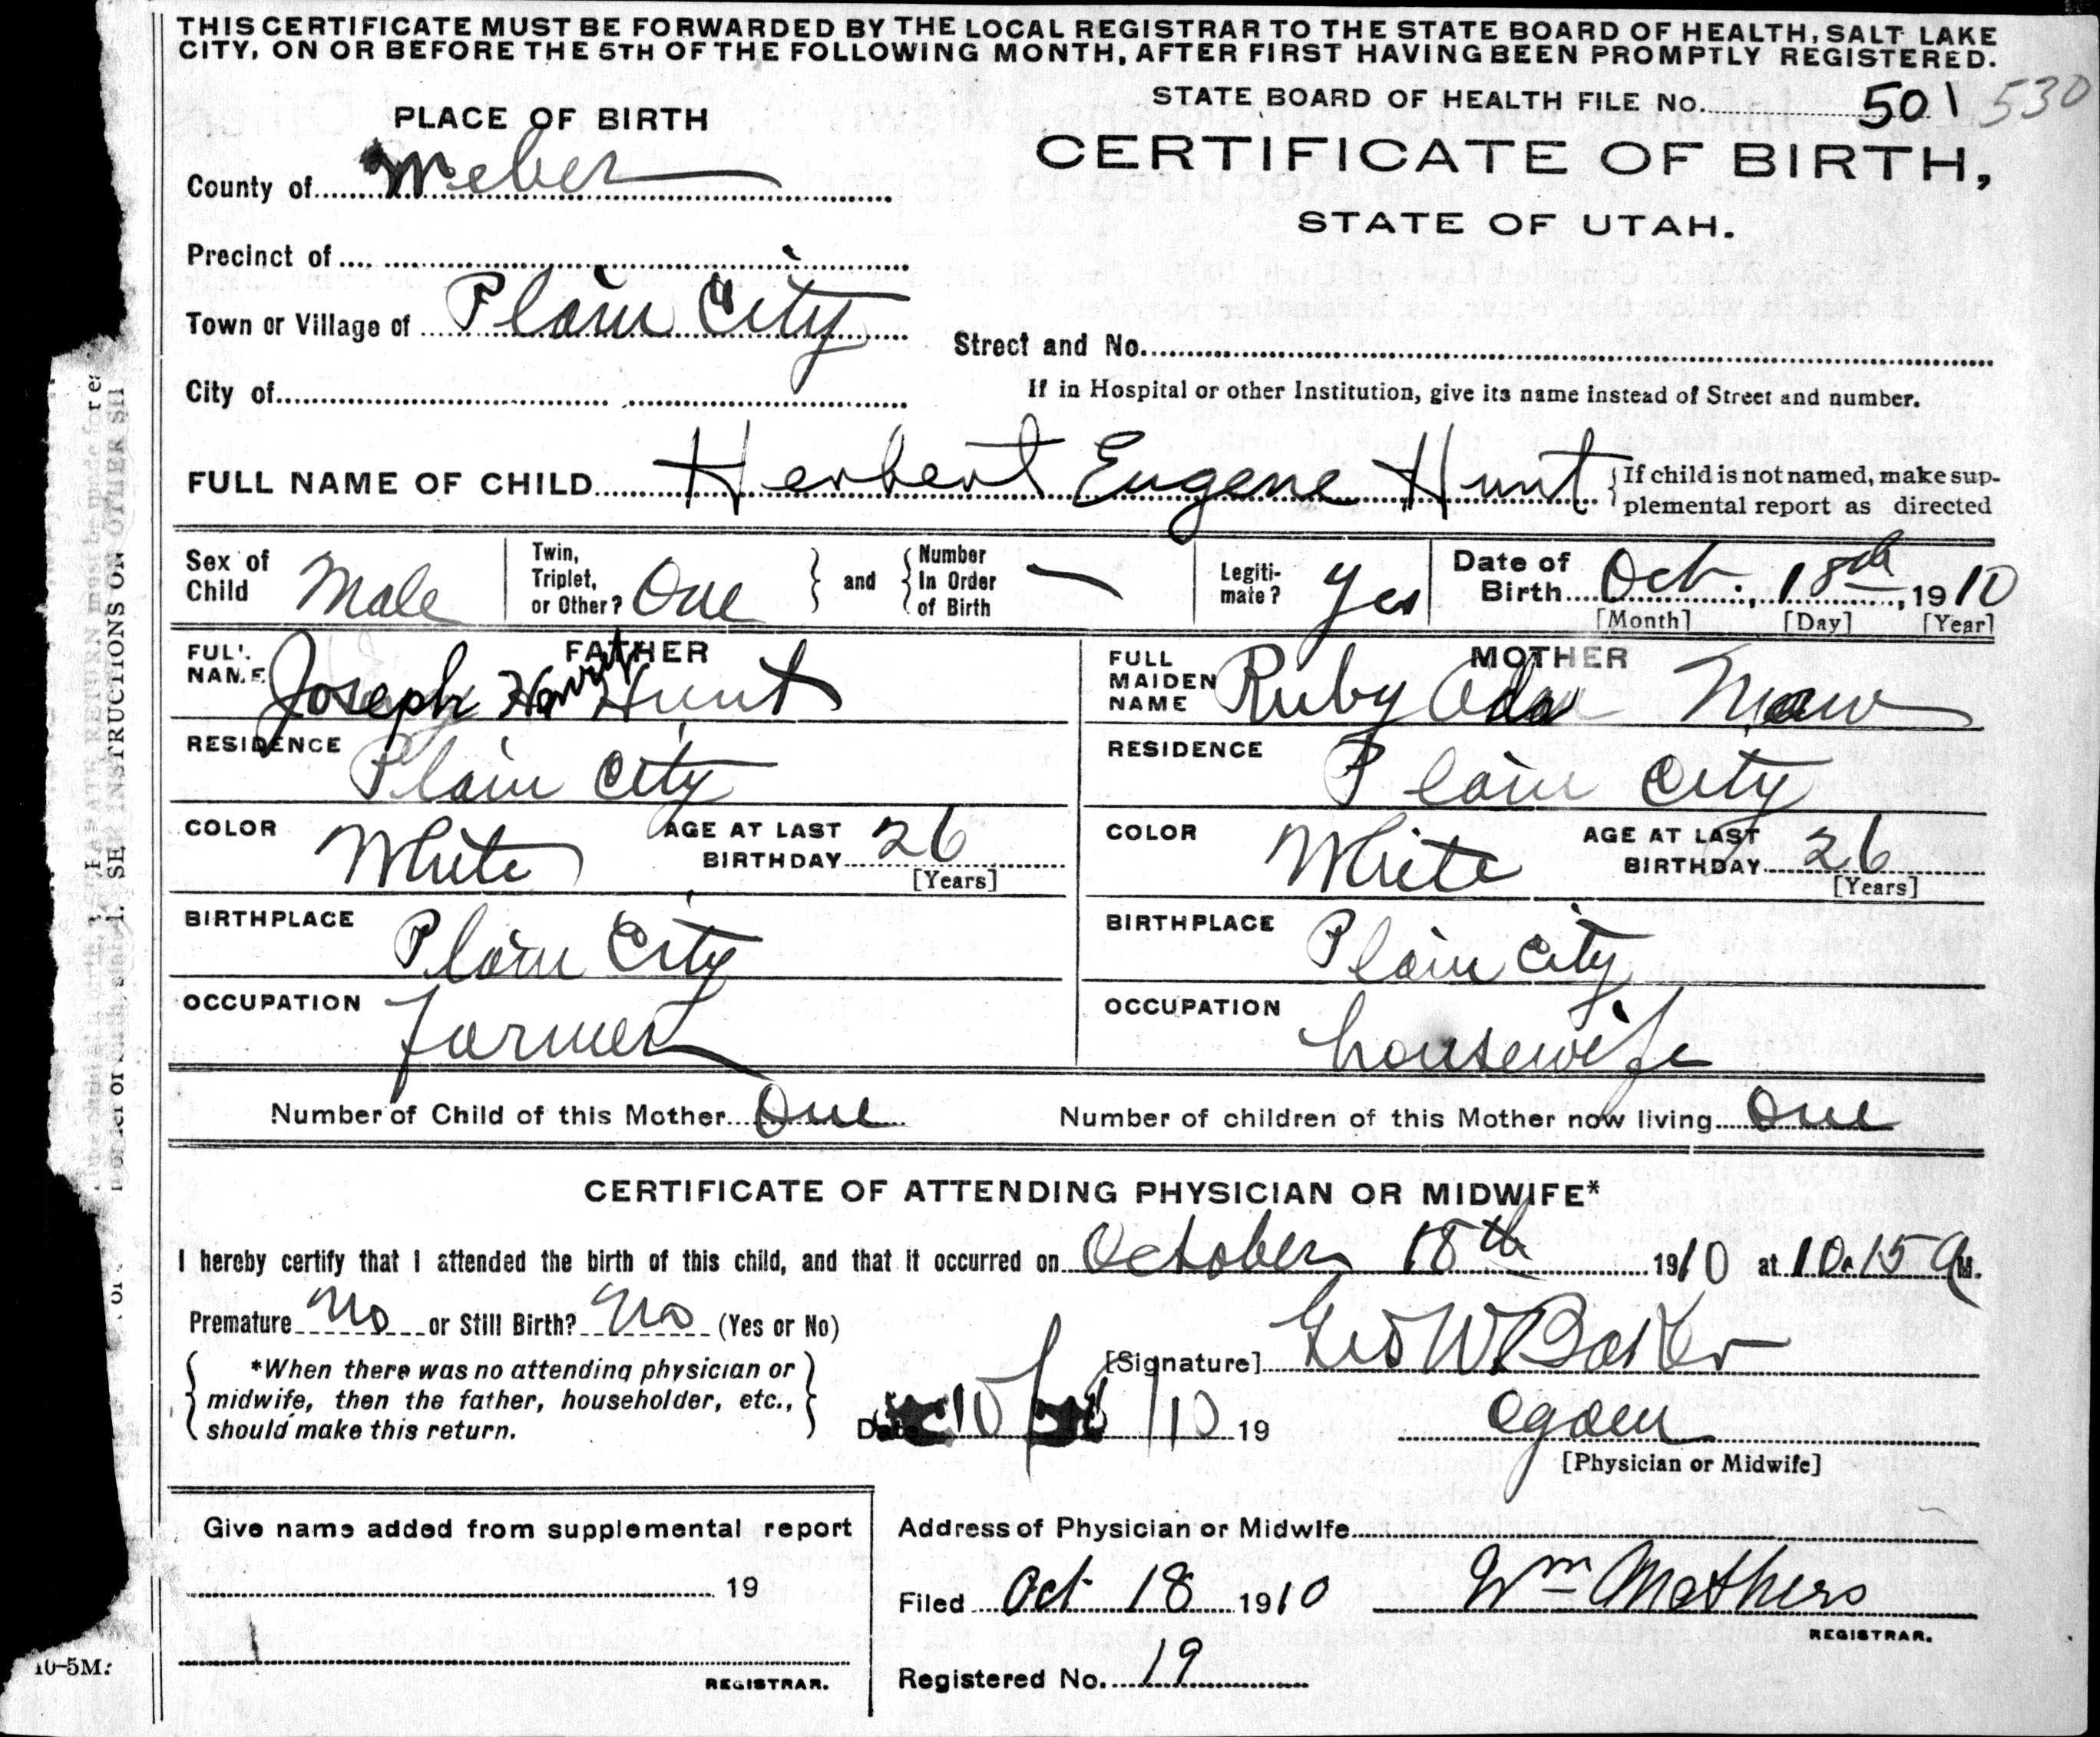 THIS CERTIFICATE MUST BE FORWARDED BY THE LOCAL REGISTRAR TO THE STATE BOARD OF HEALTH, SALT LAKE
CITY, ON OR BEFORE THE 5TH OF THE FOLLOWING MONTH, AFTER FIRST HAVING BEEN PROMPTLY REGISTERED.
STATE BOARD OF HEALTH FILE No. 501 530
PLACE OF BIRTH
CERTIFICATE OF BIRTH,
STATE OF UTAH.
County of Weber
Precinct of
Town or Village of Plain City
Street and No.
City of
If in Hospital or other Institution, give its name instead of Street and number.
FULL NAME OF CHILD Herbert Eugene Hunt {If child is not named, make sup-
plemental report as directed
Sex of Child Male
Twin, Triplet, or Other? One } and { Number In Order of Birth —
Legiti-mate? Yes
Date of Birth Oct. 18th, 1910
[Month] [Day] [Year]
FATHER
FULL NAME Joseph Hunt
RESIDENCE Plain City
COLOR White AGE AT LAST BIRTHDAY 26
[Years]
BIRTHPLACE Plain City
OCCUPATION farmer
MOTHER
FULL MAIDEN NAME Ruby Ada Maw
RESIDENCE Plain City
COLOR White AGE AT LAST BIRTHDAY 26
[Years]
BIRTHPLACE Plain City
OCCUPATION housewife
Number of Child of this Mother One Number of children of this Mother now living One
CERTIFICATE OF ATTENDING PHYSICIAN OR MIDWIFE*
I hereby certify that I attended the birth of this child, and that it occurred on October 18th 1910 at 10.15 A M.
Premature No or Still Birth? No (Yes or No)
*When there was no attending physician or
midwife, then the father, householder, etc.,
should make this return.
[Signature] Geo W Baker
Date 10 / /10 19 Ogden
[Physician or Midwife]
Give name added from supplemental report
19
REGISTRAR.
Address of Physician or Midwife
Filed Oct 18 1910 Wm Mathers
REGISTRAR.
Registered No. 19
10-5M:
SEE INSTRUCTIONS ON OTHER SI